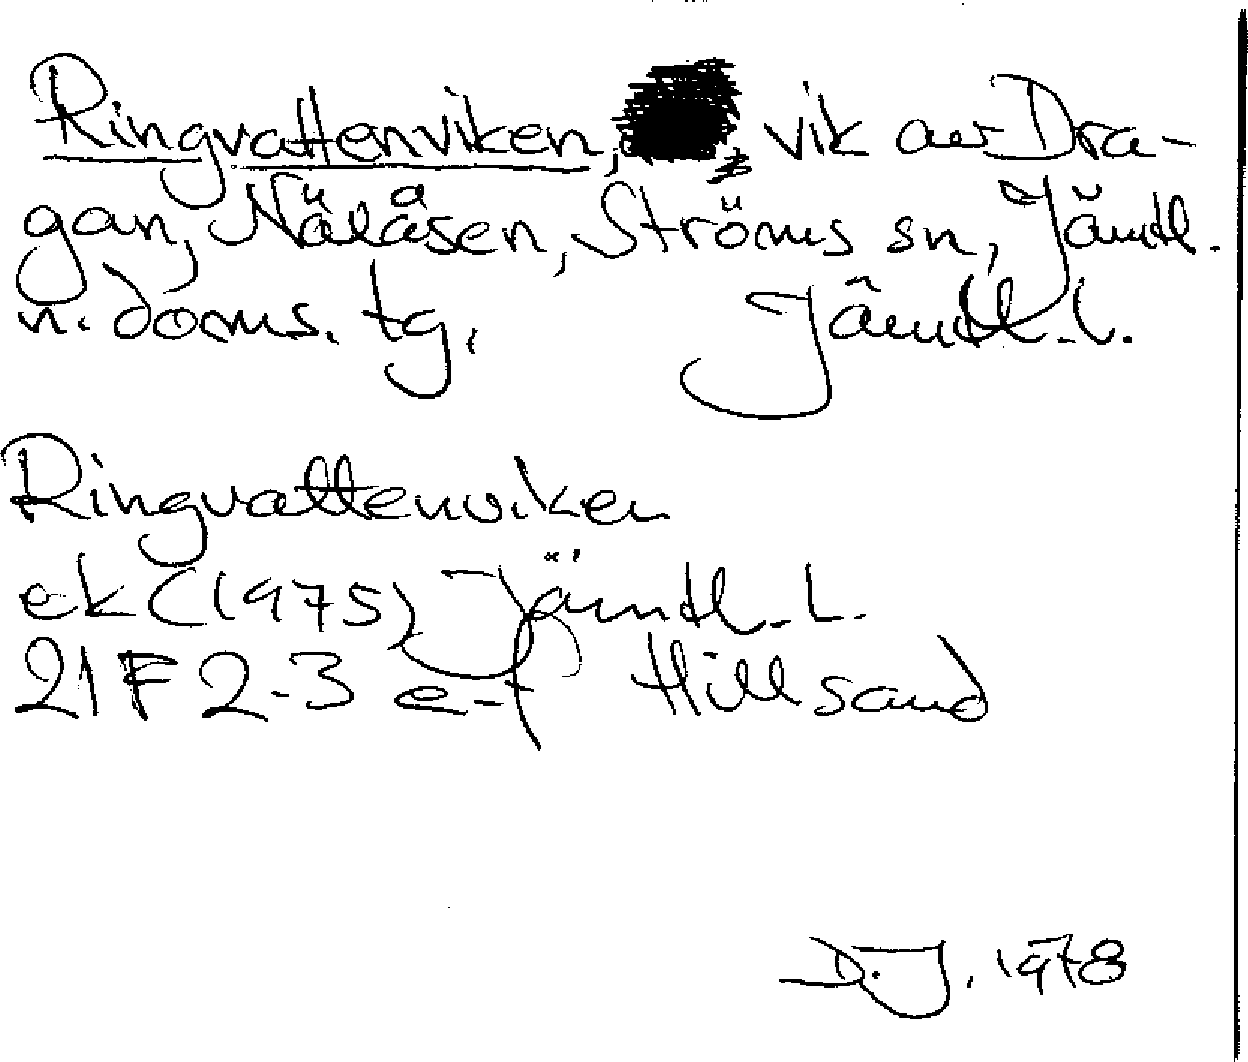 Ringvattenviken, vik av Dra-
gan, Näläsen, Ströms sn, Jämtl.
n. doms. tg, Jämtl. l.
Ringvattenviken
ek (1975) Jämtl. L.
21 F 2-3 e-f Hillsand
D.J. 1978